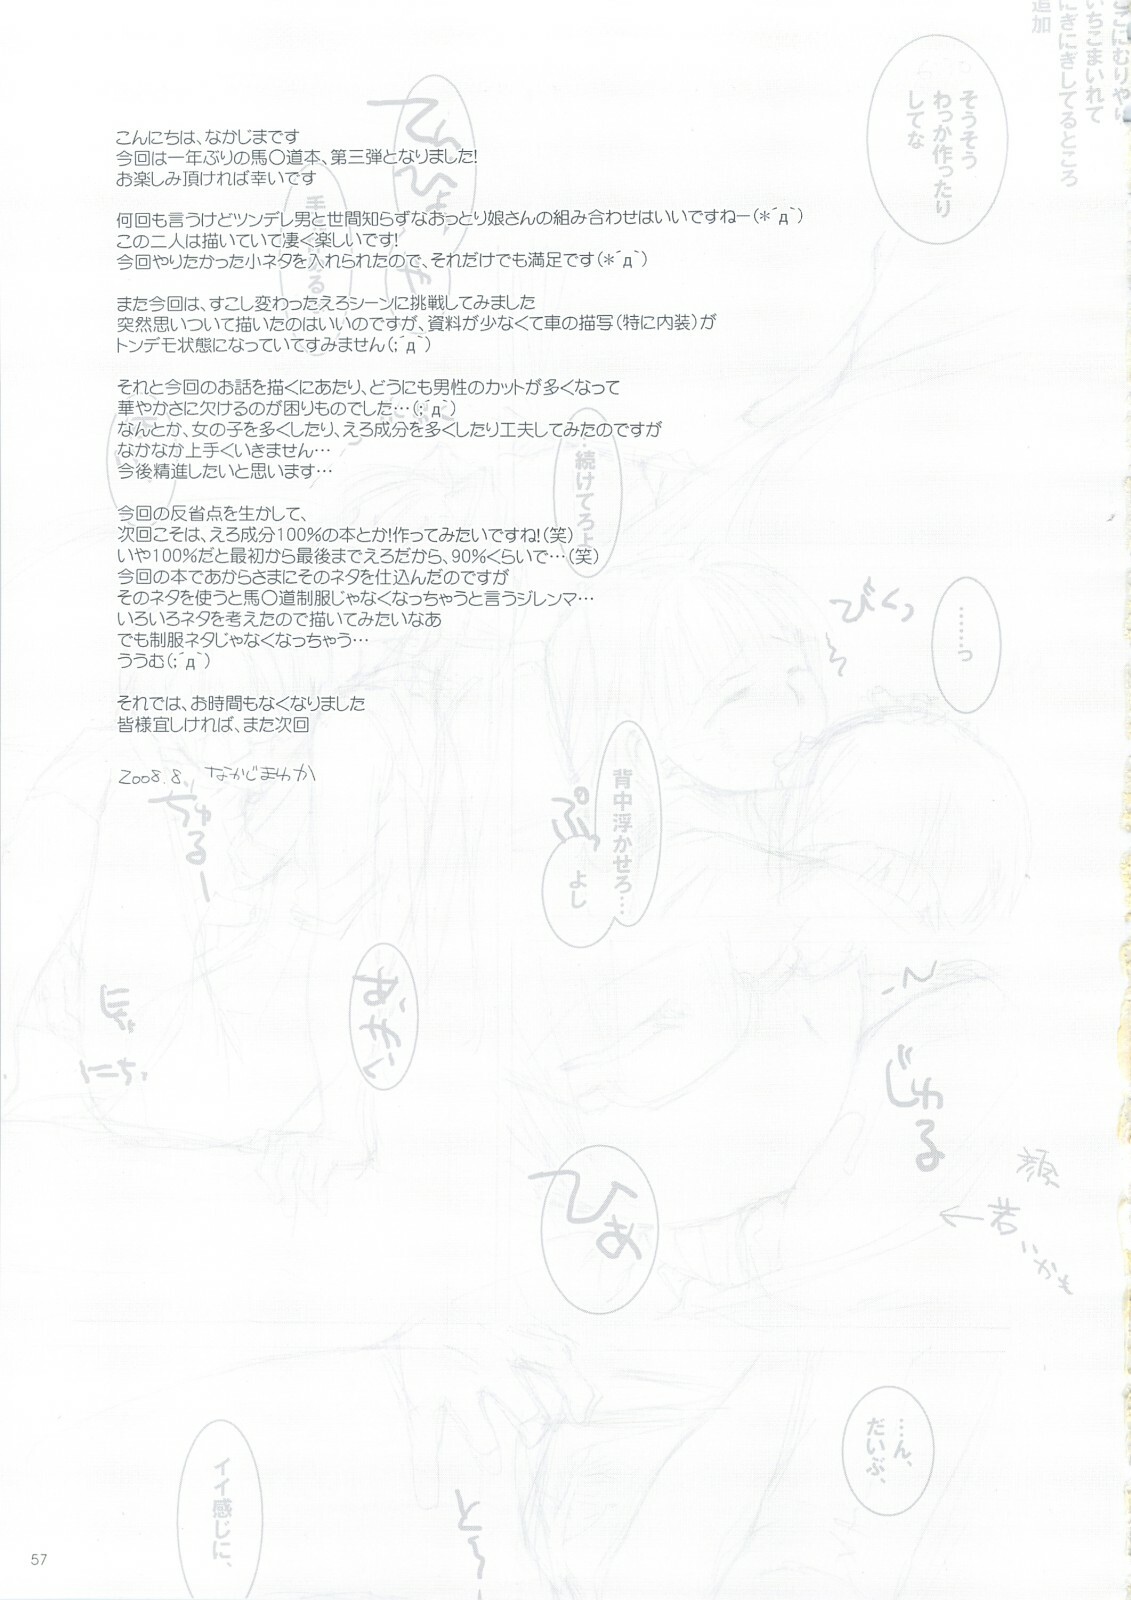 ここにむりやり
いちこまいれて
にぎにぎしてるところ
追加
そうそう
わっか作ったり
してな
てん
ひょ
こんにちは、なかじまです
今回は一年ぶりの馬〇道本、第三弾となりました!
お楽しみ頂ければ幸いです
何回も言うけどツンデレ男と世間知らずなおっとり娘さんの組み合わせはいいですねー(＊´д｀)
この二人は描いていて凄く楽しいです!
今回やりたかった小ネタを入れられたので、それだけでも満足です(＊´д｀)
また今回は、すこし変わったえろシーンに挑戦してみました
突然思いついて描いたのはいいのですが、資料が少なくて車の描写(特に内装)が
トンデモ状態になっていてすみません(;´д｀)
それと今回のお話を描くにあたり、どうにも男性のカットが多くなって
華やかさに欠けるのが困りものでした…(;´д｀)
なんとか、女の子を多くしたり、えろ成分を多くしたり工夫してみたのですが
なかなか上手くいきません…
今後精進したいと思います…
今回の反省点を生かして、
次回こそは、えろ成分100%の本とか!作ってみたいですね!(笑)
いや100%だと最初から最後までえろだから、90%くらいで…(笑)
今回の本であからさまにそのネタを仕込んだのですが
そのネタを使うと馬〇道制服じゃなくなっちゃうと言うジレンマ…
いろいろネタを考えたので描いてみたいなあ
でも制服ネタじゃなくなっちゃう…
ううむ(;´д｀)
それでは、お時間もなくなりました
皆様宜しければ、また次回
2008.8. なかじまゆか
…続けてろよ
びくっ
……っ
背中浮かせろ…
よし
ちゅるー
じゅる
ひぁ
顔
若
いかも
…ん、
だいぶ、
イイ感じに、
57